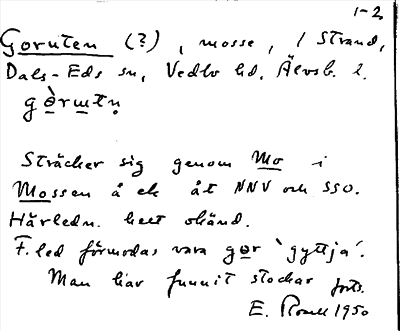 1-2
Goruten (?), mosse, i Strand,
Dals-Eds sn, Vedbo hd, Älvsb. l.
gòrɯtņ
Sträcker sig genom Mo i
Mossen å ek åt NNV och SSO.
Härledn. helt okänd.
F.led förmodas vara gor 'gyttja'.
Man har funnit stockar forts.
E. 1950